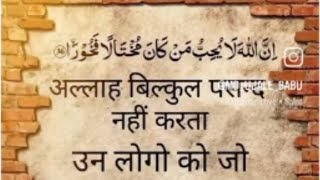 اِنَّ اللّٰهَ لَا يُحِبُّ مَنْ كَانَ مُخْتَالًا فَخُوْرًا
अल्लाह बिल्कुल पसन्द
नहीं करता
उन लोगो को जो